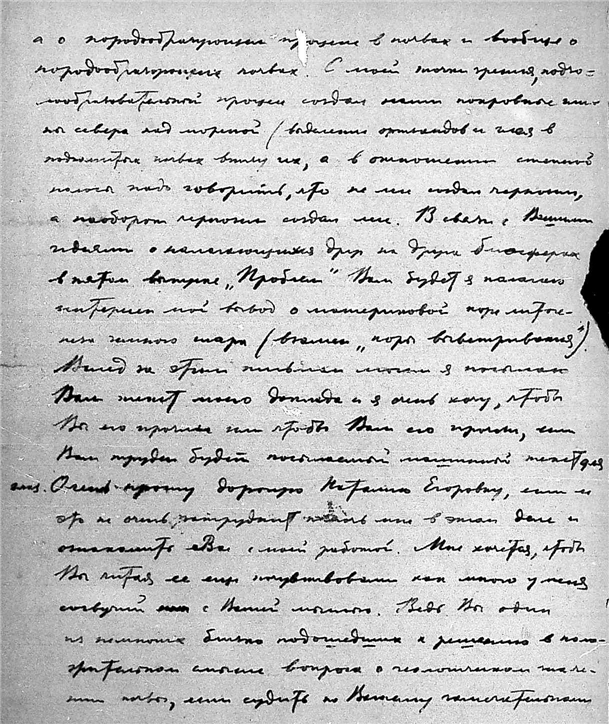 а о породообразующем процессе в почвах и вообще о
породообразующих почвах. С моей точки зрения, подзо-
лообразовательный процесс создал наши покровные
севера над мореной (выделения ортзандов и глея в
подзолистых почвах вниз их, а в отношении степной
полосы надо говорить, что не лесс создал чернозем,
а наоборот чернозем создал лесс. В связи с Вашими
идеями о налегающих друг на друга биосферах
в пятом выпуске „Проблем" Вам будет я полагаю
интересен мой вывод о материковой коре литоге-
неза земного шара (взамен „коры выветривания").
Вслед за этим письмом могли я посылаю
Вам текст моего доклада и я очень хочу, чтобы
Вы его прочли или чтобы Вам его прочли, если
Вам труден будет посылаемый машинный текст для
глаз. Очень прошу дорогую Наталию Егоровну, если ее
это не очень затруднит помочь мне в этом деле и
ознакомить Вас с моей работой. Мне хочется, чтобы
Вы читая ее еще почувствовали как много у меня
созвучий с Вашей мыслью. Ведь Вы один
из немногих близко подошедших к решению в поло-
жительном смысле вопроса о геологическом значе-
нии почвы, если судить по Вашему замечательному